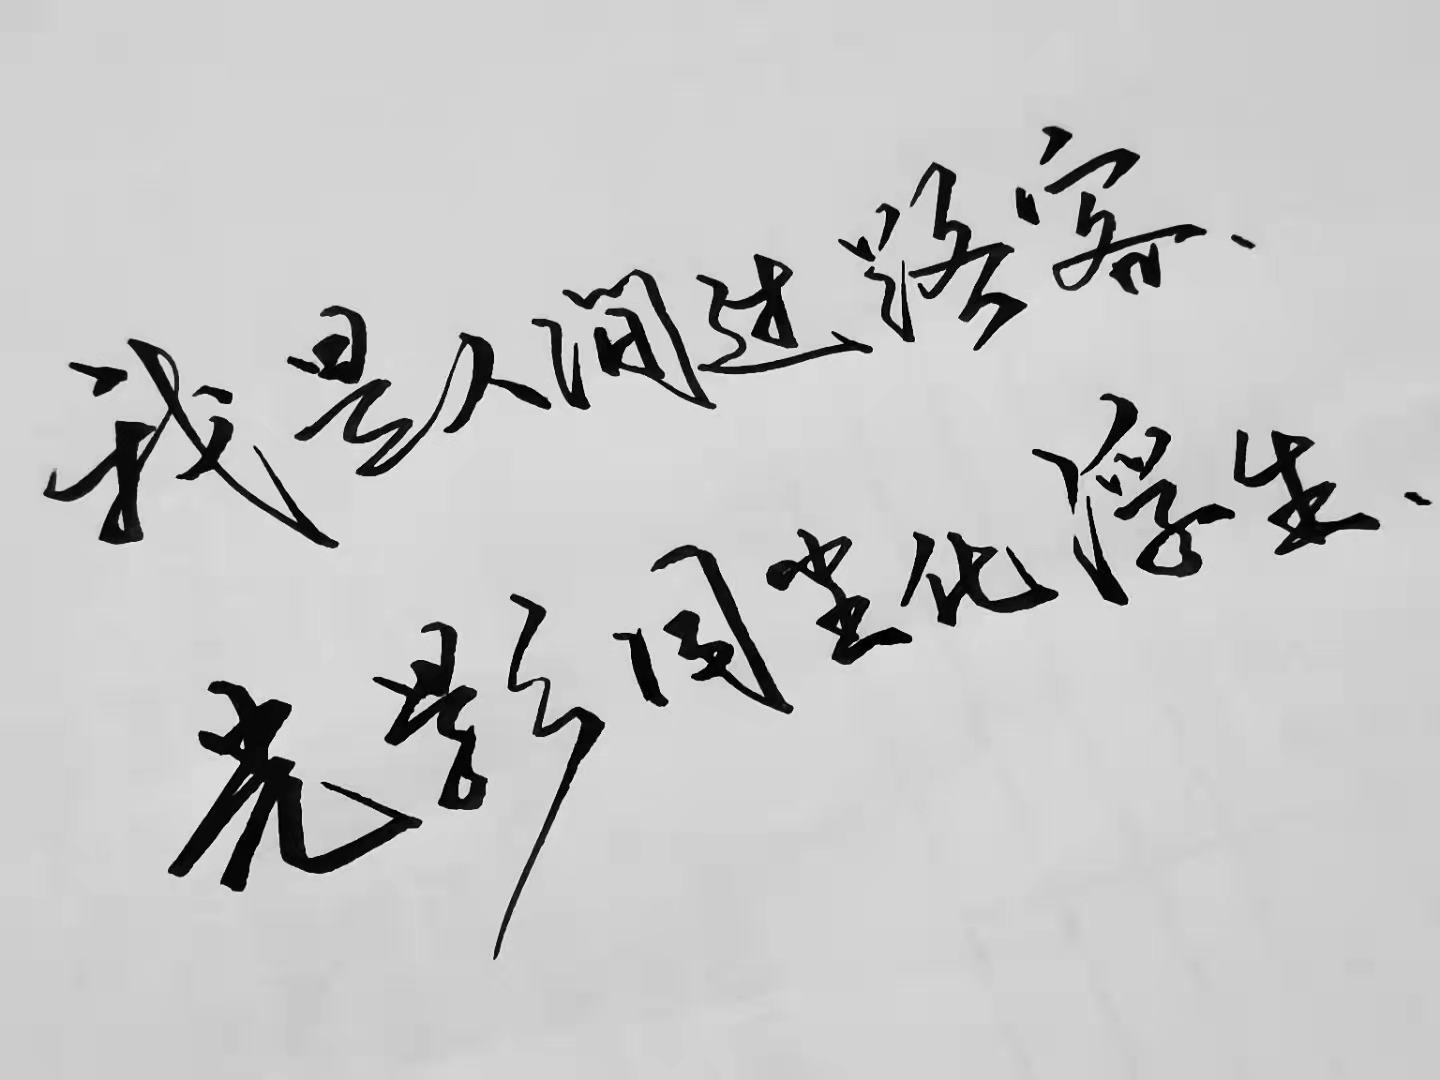 我是人间过路客、
光影同尘化浮生、